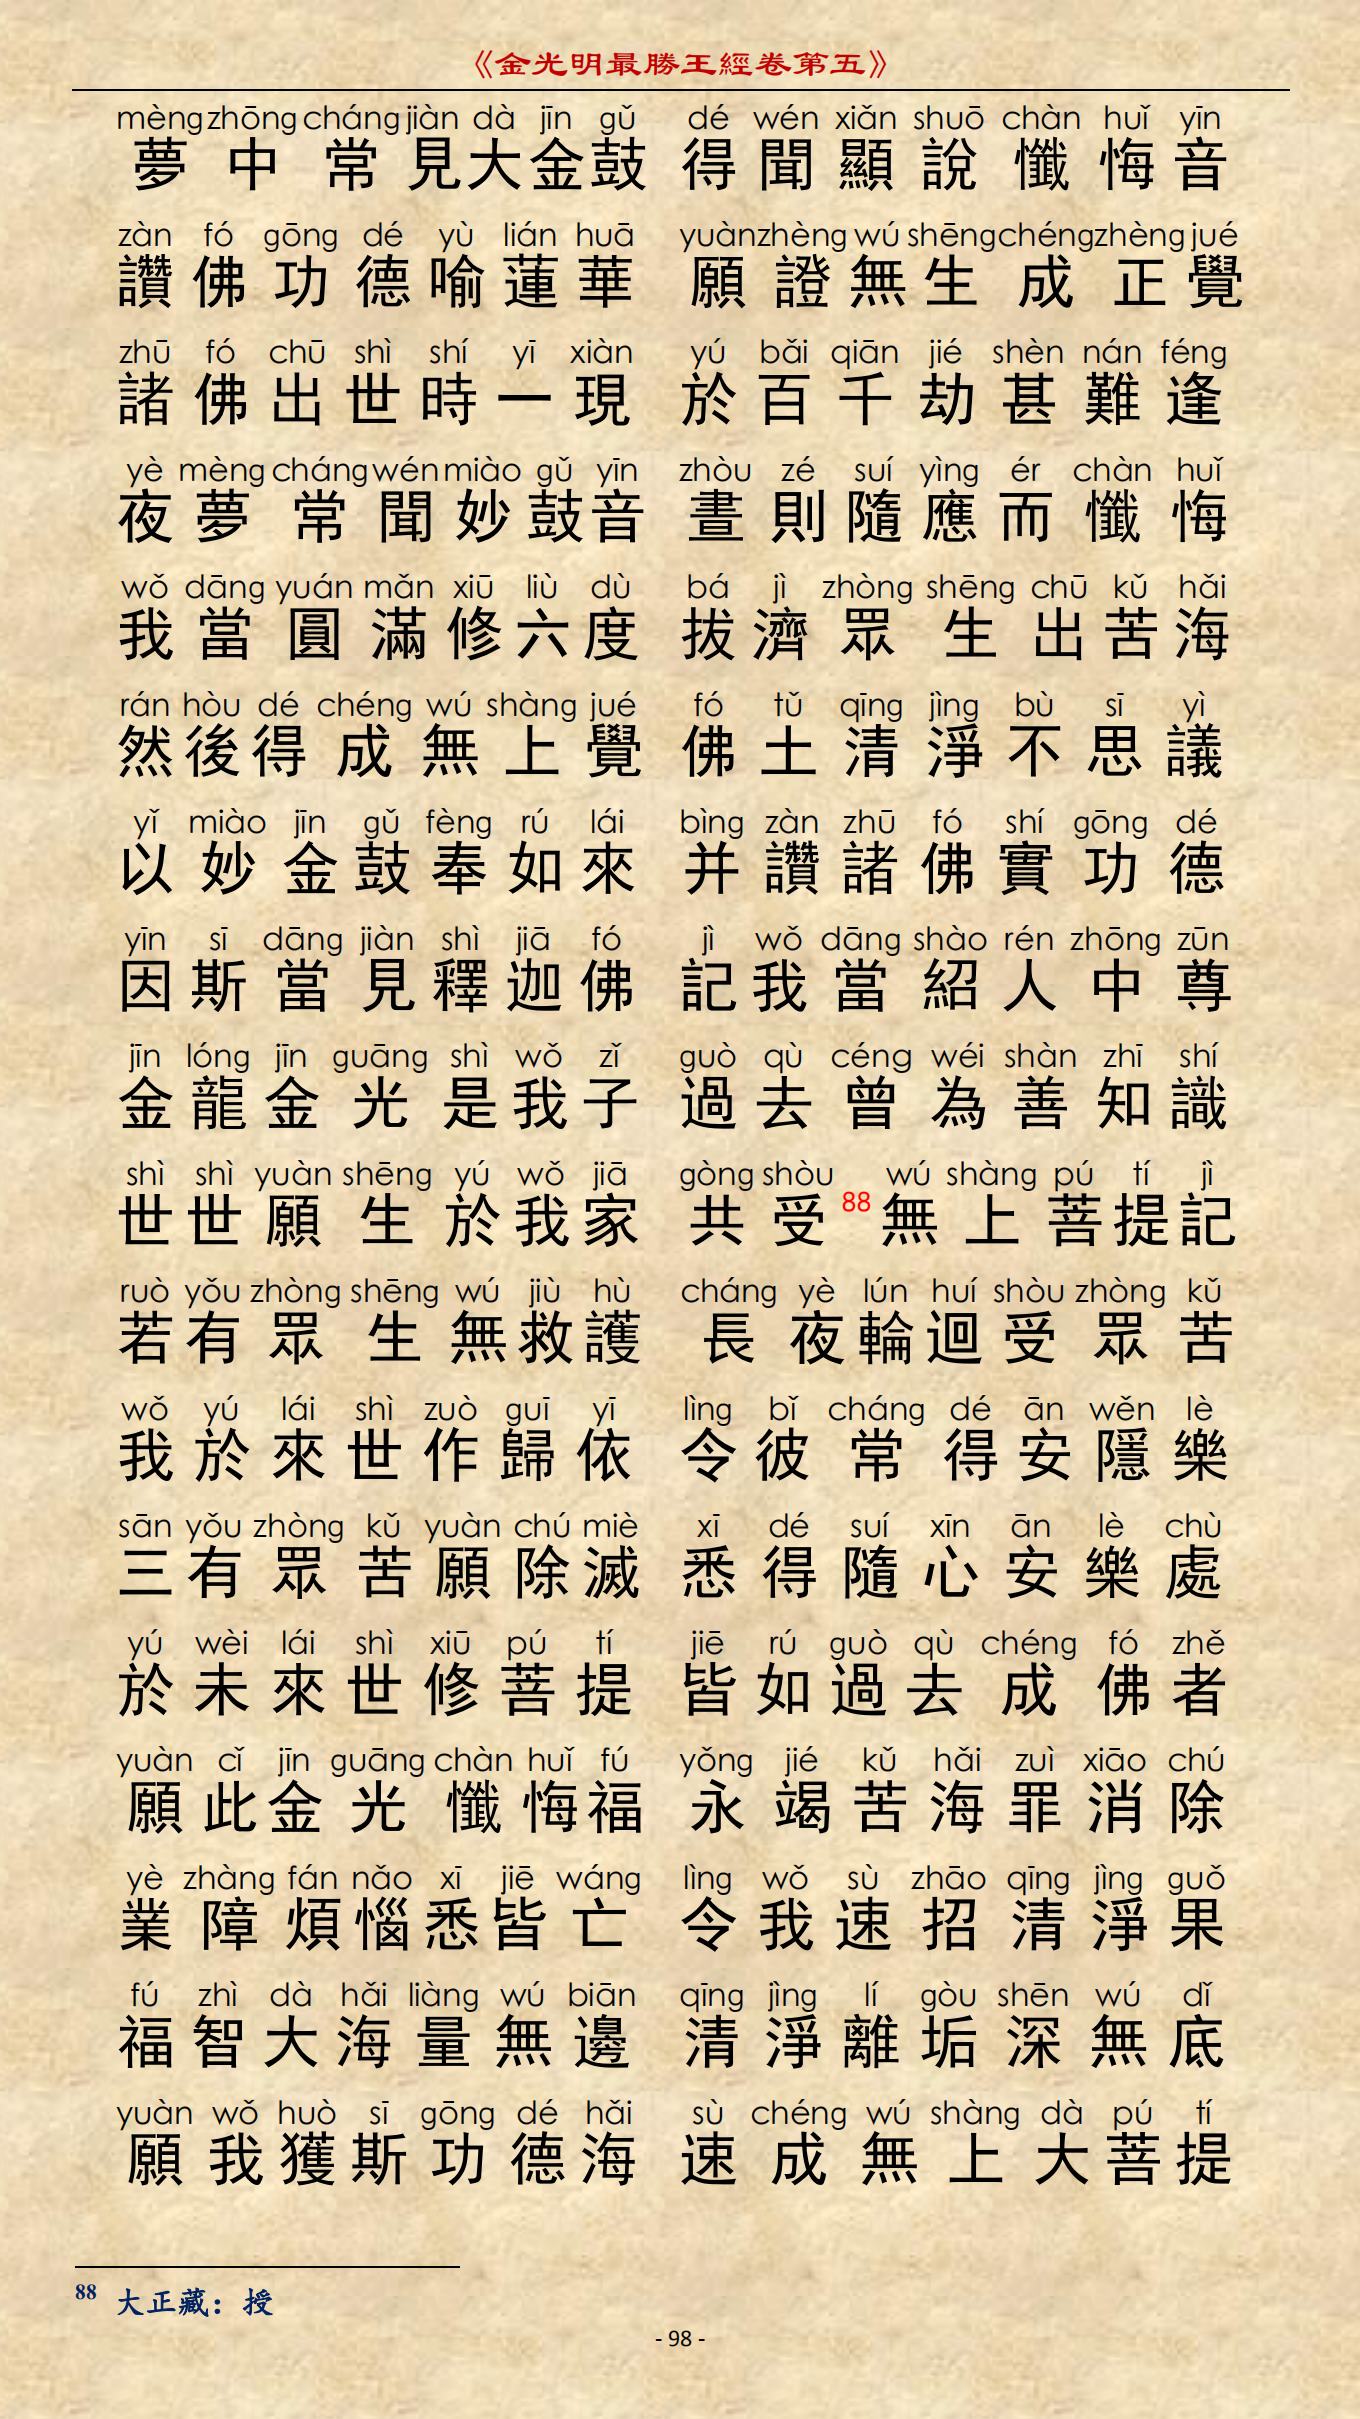 《金光明最勝王經卷第五》
mèng zhōng cháng jiàn dà jīn gǔ dé wén xiǎn shuō chàn huǐ yīn
夢中常見大金鼓 得聞顯說懺悔音
zàn fó gōng dé yù lián huā yuàn zhèng wú shēng chéng zhèng jué
讚佛功德喻蓮華 願證無生成正覺
zhū fó chū shì shí yī xiàn yú bǎi qiān jié shèn nán féng
諸佛出世時一現 於百千劫甚難逢
yè mèng cháng wén miào gǔ yīn zhòu zé suí yìng ér chàn huǐ
夜夢常聞妙鼓音 晝則隨應而懺悔
wǒ dāng yuán mǎn xiū liù dù bá jì zhòng shēng chū kǔ hǎi
我當圓滿修六度 拔濟眾生出苦海
rán hòu dé chéng wú shàng jué fó tǔ qīng jìng bù sī yì
然後得成無上覺 佛土清淨不思議
yǐ miào jīn gǔ fèng rú lái bìng zàn zhū fó shí gōng dé
以妙金鼓奉如來 并讚諸佛實功德
yīn sī dāng jiàn shì jiā fó jì wǒ dāng shào rén zhōng zūn
因斯當見釋迦佛 記我當紹人中尊
jīn lóng jīn guāng shì wǒ zǐ guò qù céng wéi shàn zhī shí
金龍金光是我子 過去曾為善知識
shì shì yuàn shēng yú wǒ jiā gòng shòu wú shàng pú tí jì
世世願生於我家 共受88無上菩提記
ruò yǒu zhòng shēng wú jiù hù cháng yè lún huí shòu zhòng kǔ
若有眾生無救護 長夜輪迴受眾苦
wǒ yú lái shì zuò guī yī lìng bǐ cháng dé ān wěn lè
我於來世作歸依 令彼常得安隱樂
sān yǒu zhòng kǔ yuàn chú miè xī dé suí xīn ān lè chù
三有眾苦願除滅 悉得隨心安樂處
yú wèi lái shì xiū pú tí jiē rú guò qù chéng fó zhě
於未來世修菩提 皆如過去成佛者
yuàn cǐ jīn guāng chàn huǐ fú yǒng jié kǔ hǎi zuì xiāo chú
願此金光懺悔福 永竭苦海罪消除
yè zhàng fán nǎo xī jiē wáng lìng wǒ sù zhāo qīng jìng guǒ
業障煩惱悉皆亡 令我速招清淨果
fú zhì dà hǎi liàng wú biān qīng jìng lí gòu shēn wú dǐ
福智大海量無邊 清淨離垢深無底
yuàn wǒ huò sī gōng dé hǎi sù chéng wú shàng dà pú tí
願我獲斯功德海 速成無上大菩提
88 大正藏：授
- 98 -